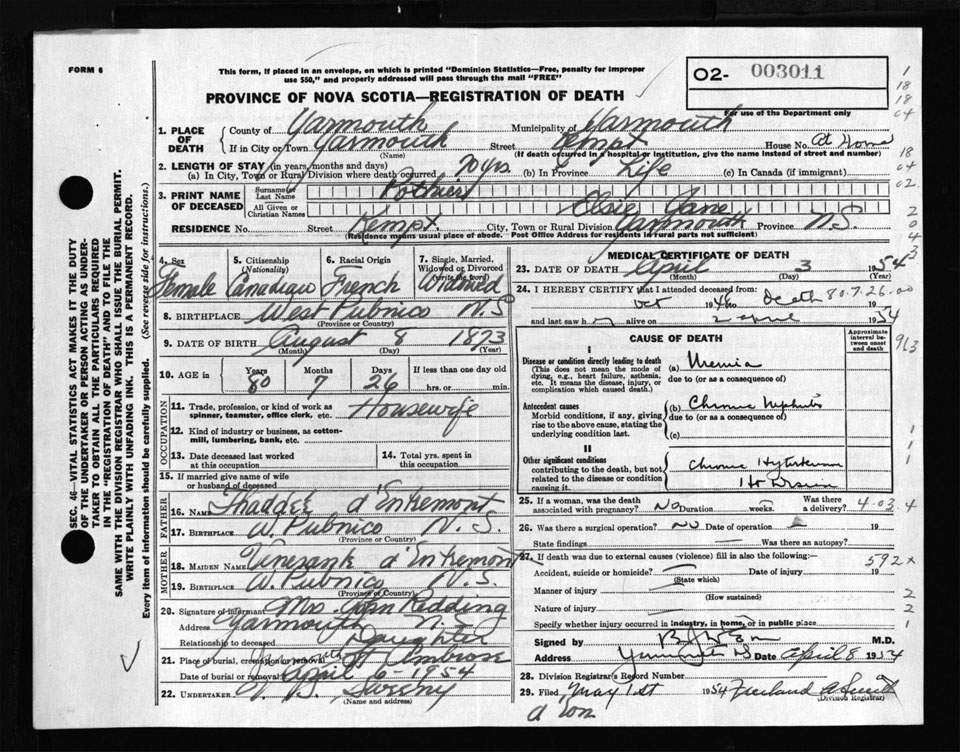 FORM 6
This form, if placed in an envelope, on which is printed "Dominion Statistics—Free, penalty for improper
use $50," and properly addressed will pass through the mail "FREE"
02- 003011
PROVINCE OF NOVA SCOTIA—REGISTRATION OF DEATH
For use of the Department only
1. PLACE OF DEATH County of Yarmouth Municipality of Yarmouth
If in City or Town Yarmouth Street Kempt House No. At Home
(Name) (If death occurred in a hospital or institution, give the name instead of street and number)
2. LENGTH OF STAY (in years, months and days)
(a) In City, Town or Rural Division where death occurred 70 yrs. (b) In Province Life (c) In Canada (if immigrant)
3. PRINT NAME OF DECEASED Surname or Last Name Pothier
All Given or Christian Names Elsie Jane
RESIDENCE No. Street Kempt City, Town or Rural Division Yarmouth Province N.S.
(Residence means usual place of abode. Post Office Address for residents in rural parts not sufficient)
4. Sex 5. Citizenship (Nationality) 6. Racial Origin 7. Single, Married, Widowed or Divorced (write the word)
Female Canadian French Widowed
8. BIRTHPLACE West Pubnico N.S.
(Province or Country)
9. DATE OF BIRTH August 8 1873
(Month) (Day) (Year)
10. AGE in Years Months Days If less than one day old
80 7 26 hrs. or min.
OCCUPATION
11. Trade, profession, or kind of work as spinner, teamster, office clerk, etc. Housewife
12. Kind of industry or business, as cotton-mill, lumbering, bank, etc.
13. Date deceased last worked at this occupation 14. Total yrs. spent in this occupation
15. If married give name of wife or husband of deceased
FATHER
16. Name Thaddée d'Entremont
17. Birthplace W. Pubnico N.S.
(Province or Country)
MOTHER
18. MAIDEN NAME d'Entremont
19. BIRTHPLACE W. Pubnico N.S.
(Province or Country)
20. Signature of informant Mrs. John Redding
Address Yarmouth N.S.
Relationship to deceased Daughter
21. Place of burial, cremation or removal Yarmouth St Ambrose
Date of burial or removal April 6-1954
22. UNDERTAKER V. S. Sweeny
(Name and address)
MEDICAL CERTIFICATE OF DEATH
23. DATE OF DEATH April 3 1954
(Month) (Day)
24. I HEREBY CERTIFY that I attended deceased from:
Oct 1946 to death 80.7.26.00 19
and last saw h alive on 2 april 1954
CAUSE OF DEATH
Approximate interval between onset and death
I
Disease or condition directly leading to death
(This does not mean the mode of dying, e.g., heart failure, asthenia, etc. It means the disease, injury, or complication which caused death.)
(a) Uremia
due to (or as a consequence of)
Antecedent causes
Morbid conditions, if any, giving rise to the above cause, stating the underlying condition last.
(b) Chronic Nephritis
due to (or as a consequence of)
(c)
II
Other significant conditions
contributing to the death, but not related to the disease or condition causing it.
Chronic
25. If a woman, was the death associated with pregnancy? No Duration weeks. Was there a delivery? 4.03.4
26. Was there a surgical operation? No Date of operation 19
State findings Was there an autopsy?
27. If death was due to external causes (violence) fill in also the following:— 592x
Accident, suicide or homicide? Date of injury 19
(State which)
Manner of injury
(How sustained)
Nature of injury
Specify whether injury occurred in industry, in home, or in public place
Signed by M.D.
Address Yarmouth NS Date April 8 1954
28. Division Registrar's Record Number
29. Filed May 1st 1954
(Division Registrar)
SEC. 46—VITAL STATISTICS ACT MAKES IT THE DUTY
OF THE UNDERTAKER OR PERSON ACTING AS UNDER-
TAKER TO OBTAIN ALL THE PARTICULARS REQUIRED
IN THE "REGISTRATION OF DEATH" AND TO FILE THE
SAME WITH THE DIVISION REGISTRAR WHO SHALL ISSUE THE BURIAL PERMIT.
WRITE PLAINLY WITH UNFADING INK. THIS IS A PERMANENT RECORD.
Every item of information should be carefully supplied. (See reverse side for instructions.)
1
18
18
04
18
04
02
2
0
4
3
913
1
1
1
2
2
1